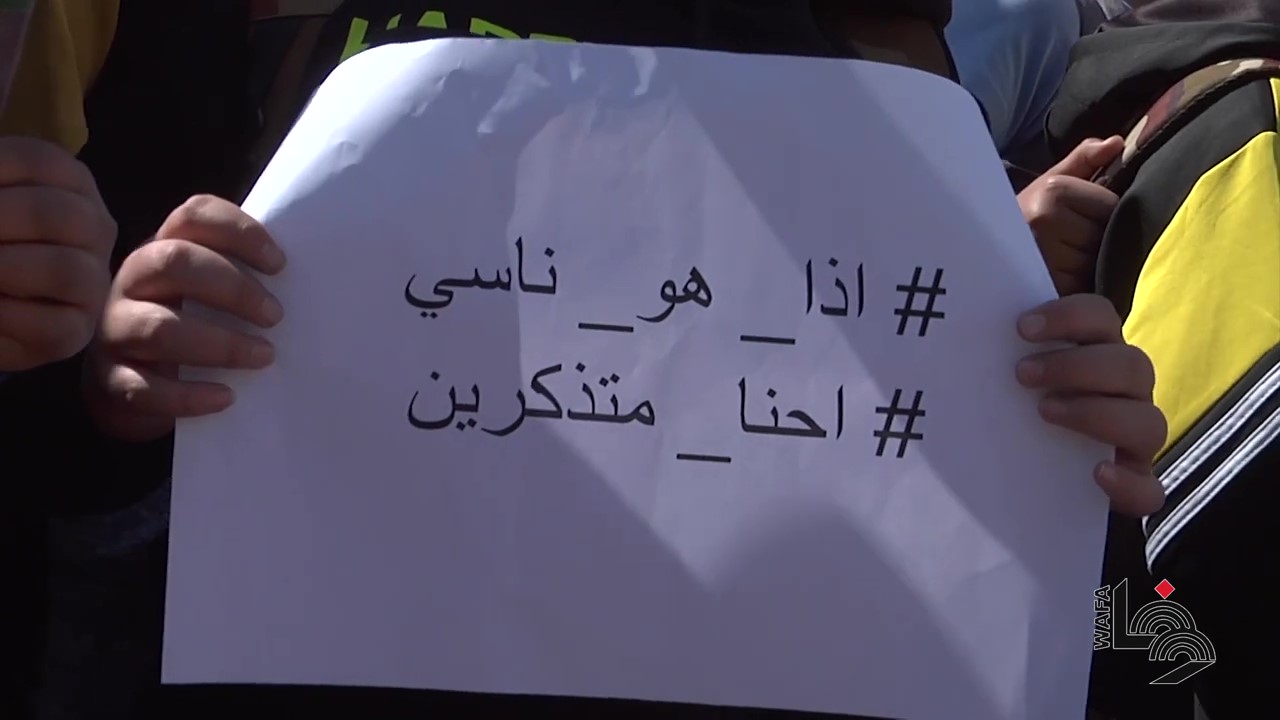 # اذا_ هو_ ناسي
# احنا_ متذكرين
WAFA
وفا